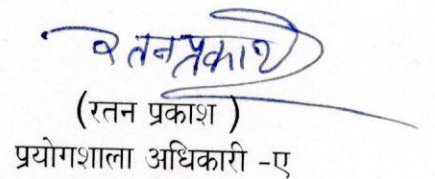 रतन प्रकाश
(रतन प्रकाश )
प्रयोगशाला अधिकारी -ए